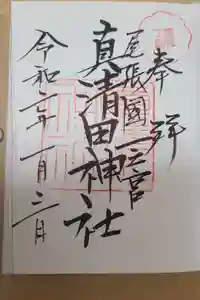 奉拝
尾張國一之宮
真清田神社
令和二年一月三日